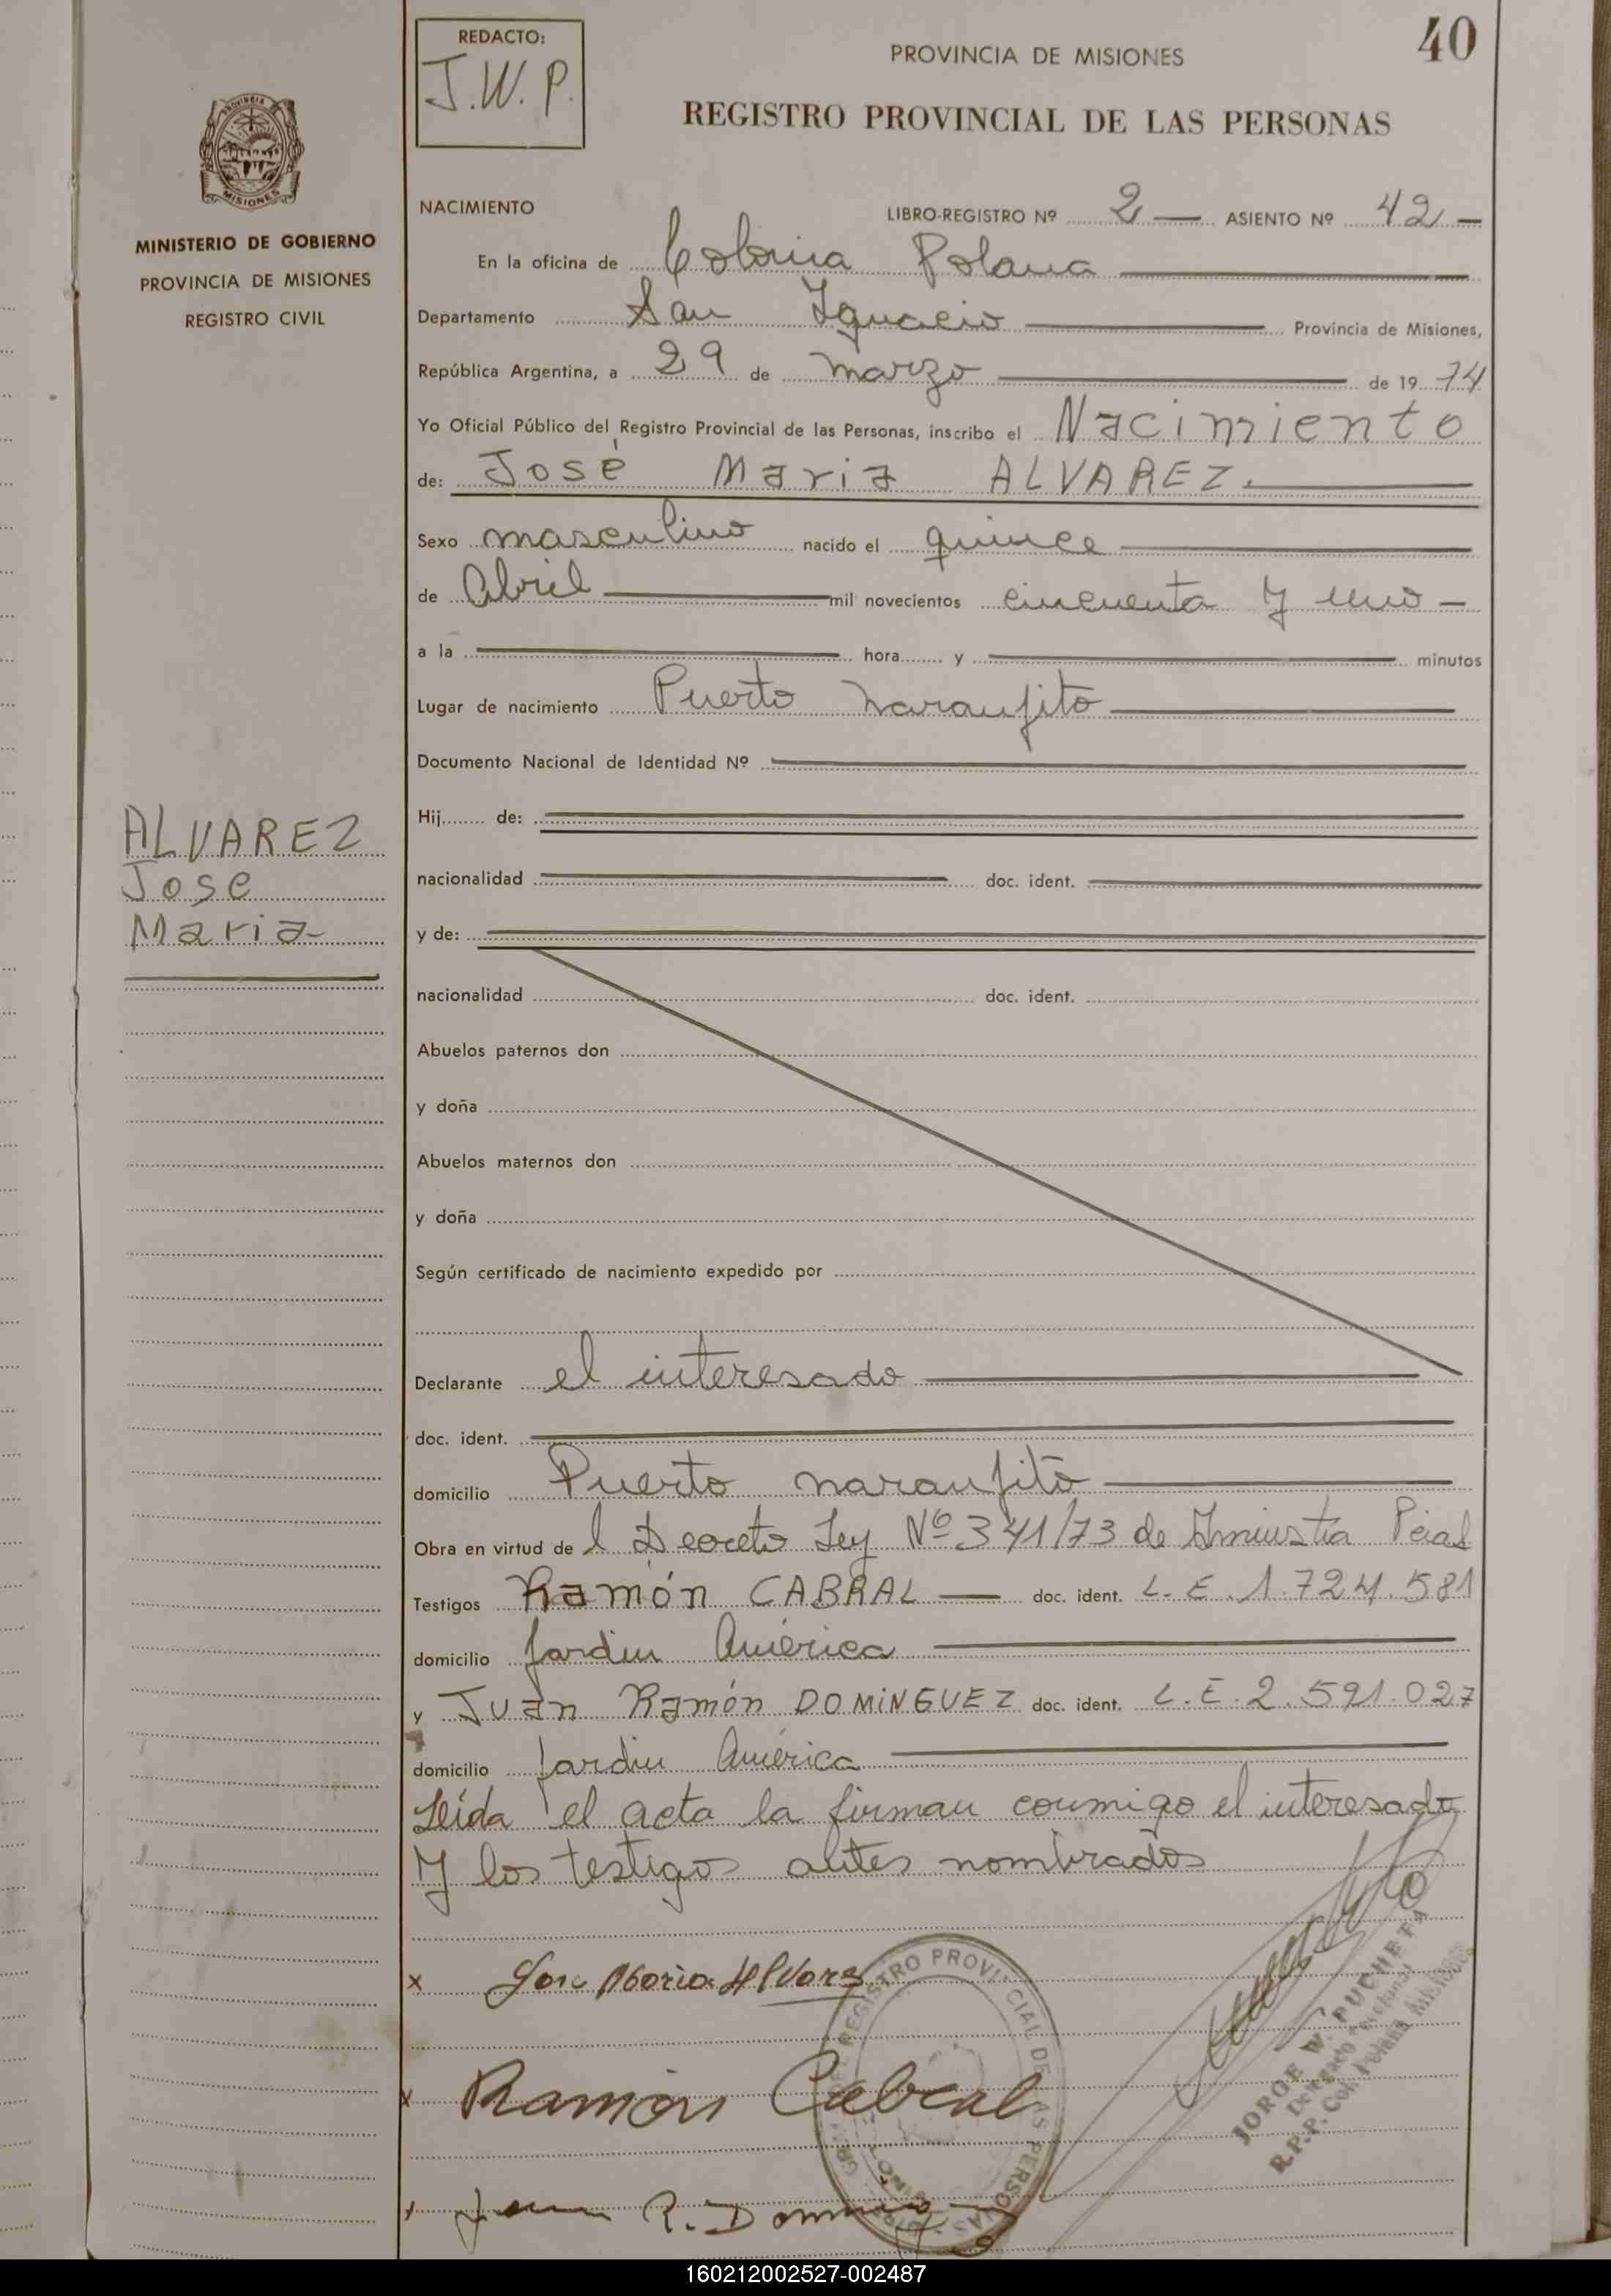 40
REDACTO:
J.W.P.
PROVINCIA DE MISIONES
REGISTRO PROVINCIAL DE LAS PERSONAS
MISIONES
MINISTERIO DE GOBIERNO
PROVINCIA DE MISIONES
REGISTRO CIVIL
ALVAREZ
Jose
Maria
NACIMIENTO LIBRO-REGISTRO Nº 2 — ASIENTO Nº 42 —
En la oficina de Colonia Polana
Departamento San Ignacio Provincia de Misiones,
República Argentina, a 29 de marzo de 19 74
Yo Oficial Público del Registro Provincial de las Personas, inscribo el Nacimiento
de: José Maria ALVAREZ.
Sexo masculino nacido el quince
de Abril mil novecientos cincuenta y uno —
a la hora y minutos
Lugar de nacimiento Puerto naranjito
Documento Nacional de Identidad Nº
Hij de:
nacionalidad doc. ident.
y de:
nacionalidad doc. ident.
Abuelos paternos don
y doña
Abuelos maternos don
y doña
Según certificado de nacimiento expedido por
Declarante el interesado
doc. ident.
domicilio Puerto naranjito
Obra en virtud de l Decreto Ley Nº 341/73 de Pcial
Testigos Ramón CABRAL — doc. ident. L.E. 1.724.581
domicilio Jardin América
y Juan Ramón DOMINGUEZ doc. ident. L.E. 2.591.027
domicilio Jardin América
Leída el acta la firman conmigo el interesado
y los testigos antes nombrados
x Jose Maria Alvarez
x Ramón Cabral
x Juan R. Doming
REGISTRO PROVINCIAL DE LAS PERSONAS
JORGE W. PUCHETA
Delegado Seccional
R.P.P. Col. Polana Misiones
160212002527-002487